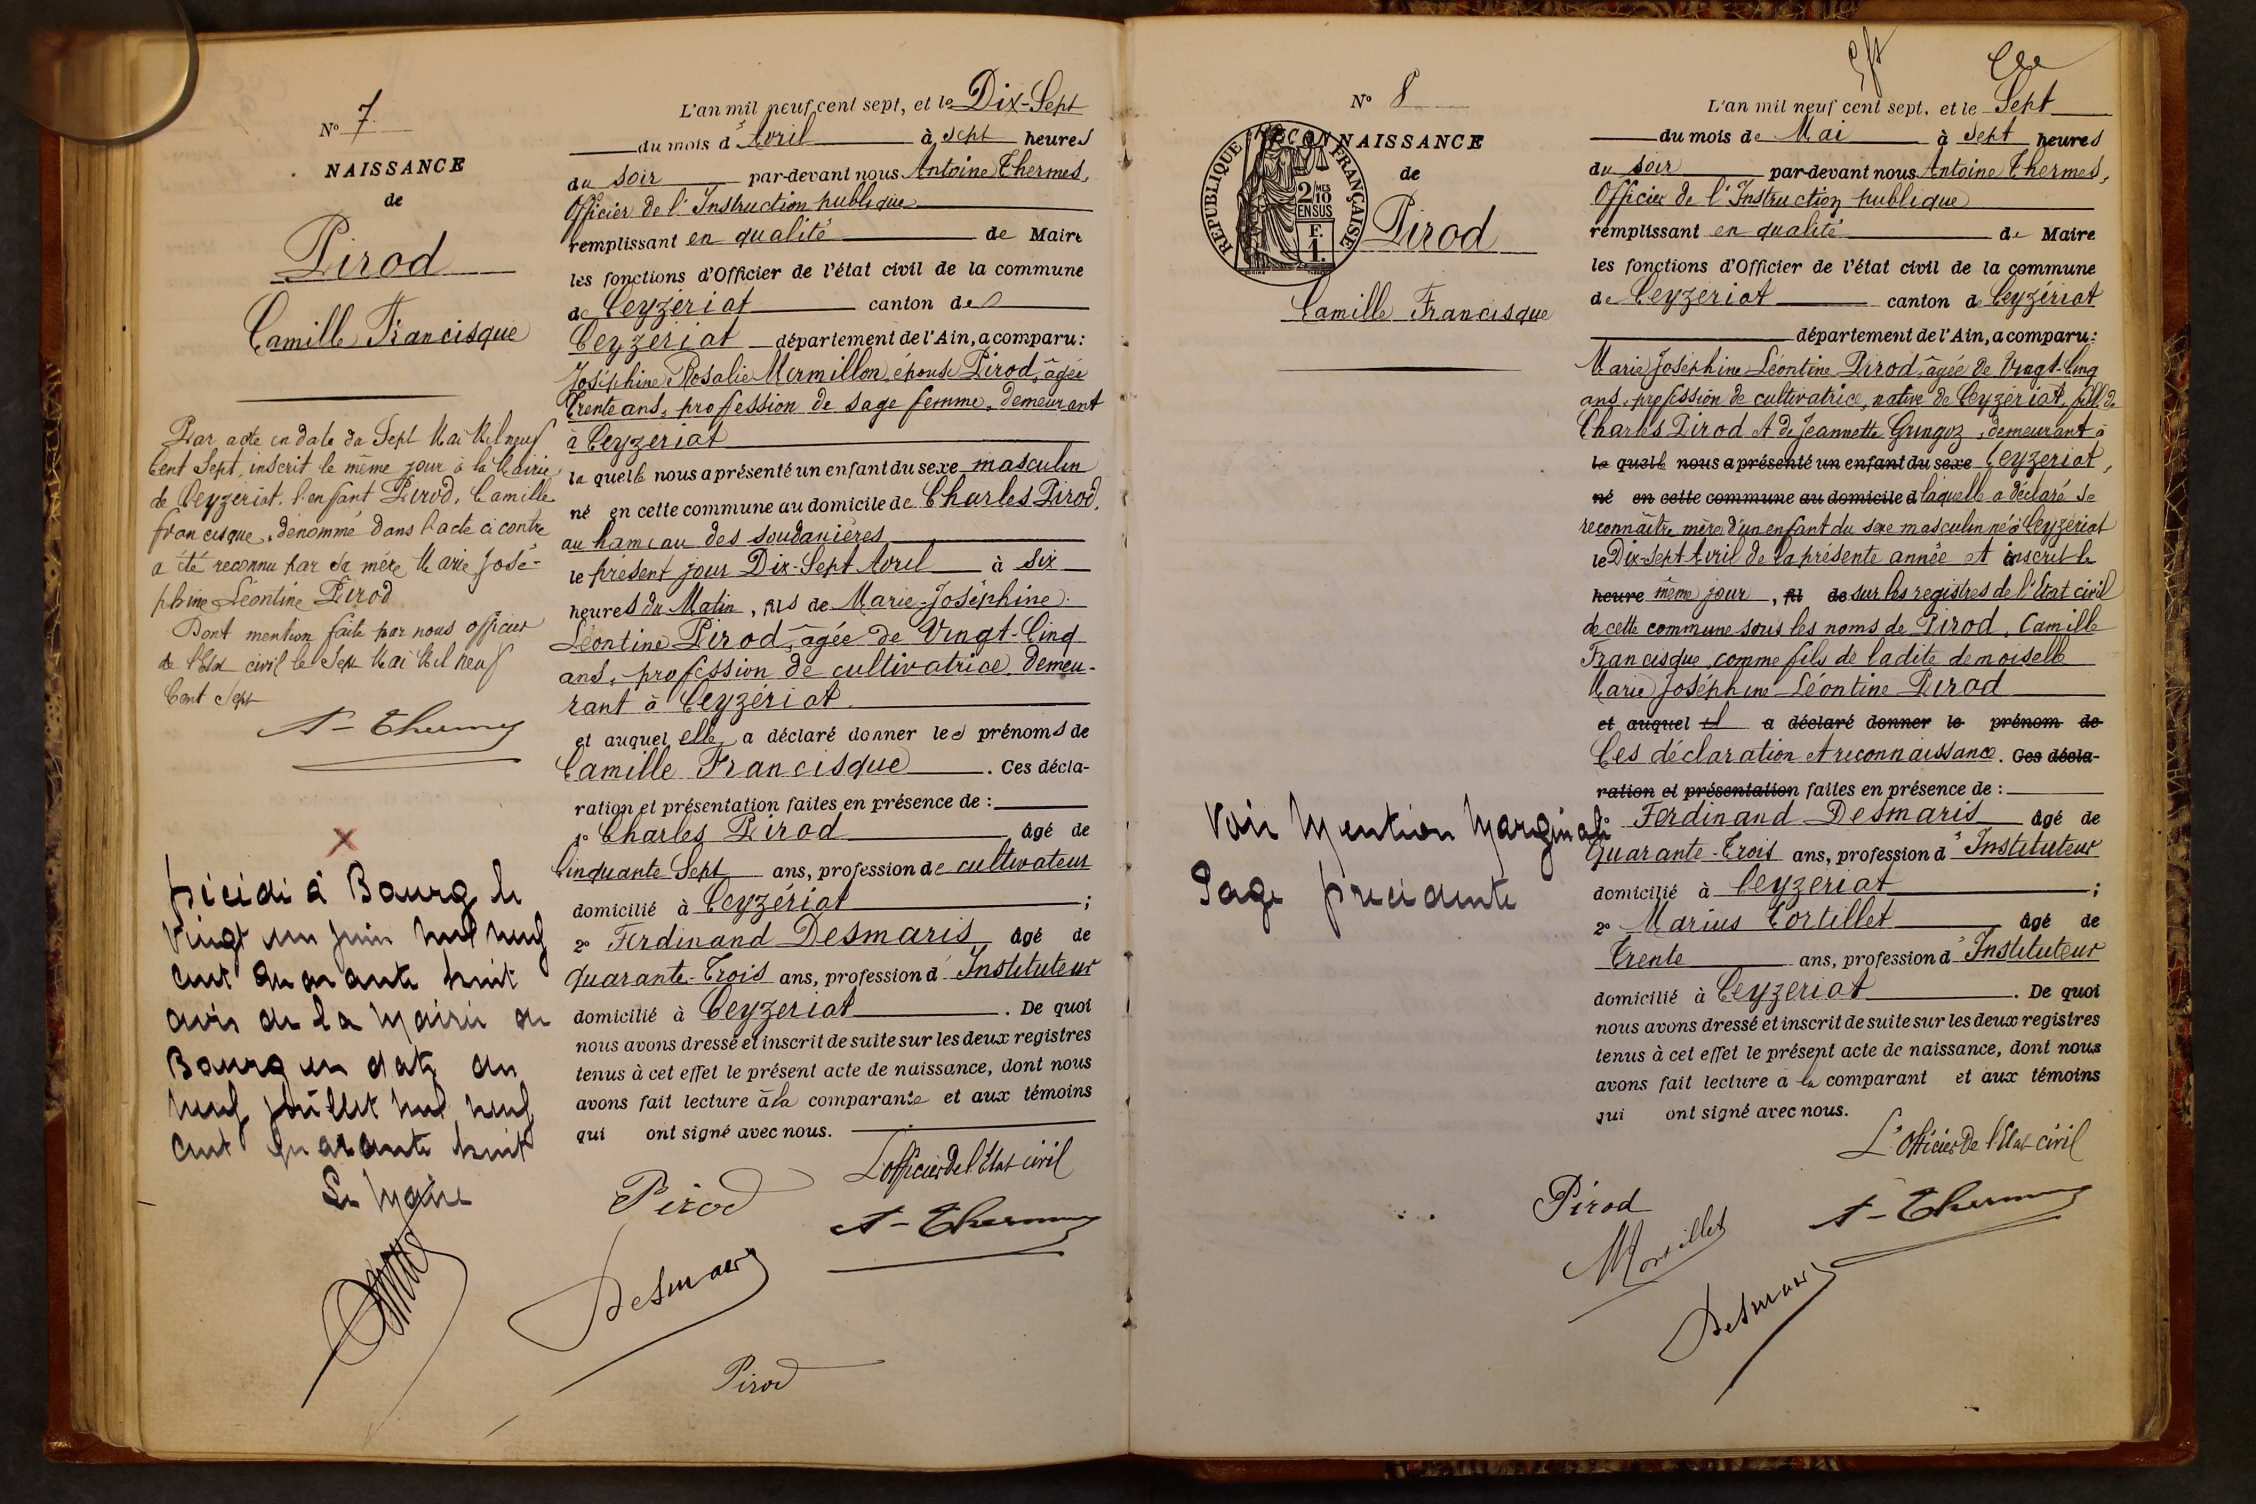 N° 7
NAISSANCE
de
Pirod
Camille Francisque
Par acte en date du Sept Mai Mil neuf
Cent Sept, inscrit le même jour à la Mairie
de Ceyzériat, l'enfant Pirod, Camille
francisque, dénommé dans l'acte ci contre
a été reconnu par sa mère Marie José-
phine Léontine Pirod
Dont mention faite par nous officier
de l'Etat civil le Sept Mai Mil neuf
Cent Sept
A- Thermes
X
Décédé à Bourg le
Vingt un juin mil neuf
cent quarante huit
avis de la Mairie de
Bourg en date du
neuf juillet mil neuf
cent quarante huit
Le Maire
L'an mil neuf cent sept, et le Dix-Sept
du mois d'Avril à sept heures
du soir par-devant nous Antoine Thermes,
Officier de l'Instruction publique
remplissant en qualité de Maire
les fonctions d'Officier de l'état civil de la commune
de Ceyzériat canton de
Ceyzériat département de l'Ain, a comparu:
Joséphine Rosalie Mermillon, épouse Pirod, âgée
Trente ans, profession de sage femme, demeurant
à Ceyzériat
laquelle nous a présenté un enfant du sexe masculin
né en cette commune au domicile de Charles Pirod,
au hameau des soudanières
le présent jour Dix-Sept Avril à six
heures du Matin, fils de Marie Joséphine
Léontine Pirod, âgée de Vingt-Cinq
ans, profession de cultivatrice, demeu-
rant à Ceyzériat
et auquel elle a déclaré donner les prénoms de
Camille Francisque. Ces décla-
ration et présentation faites en présence de :
1° Charles Pirod âgé de
Cinquante Sept ans, profession de cultivateur
domicilié à Ceyzériat ;
2° Ferdinand Desmaris âgé de
quarante-Trois ans, profession d'Instituteur
domicilié à Ceyzeriat. De quoi
nous avons dressé et inscrit de suite sur les deux registres
tenus à cet effet le présent acte de naissance, dont nous
avons fait lecture à la comparante et aux témoins
qui ont signé avec nous.
L'officier de l'Etat civil
Pirod
A- Thermes
Desmaris
Pirod
N° 8
RECONNAISSANCE
de
REPUBLIQUE FRANÇAISE
2 MES
10
EN SUS
F.
1.
Pirod
Camille Francisque
Voir Mention Marginale
Page précédente
L'an mil neuf cent sept, et le Sept
du mois de Mai à sept heures
du soir par-devant nous Antoine Thermes,
Officier de l'Instruction publique
remplissant en qualité de Maire
les fonctions d'Officier de l'état civil de la commune
de Ceyzériat canton de Ceyzériat
département de l'Ain, a comparu:
Marie Joséphine Léontine Pirod, âgée de Vingt-Cinq
ans, profession de cultivatrice, native de Ceyzériat, fille de
Charles Pirod et de Jeannette, demeurant à
la quelle nous a présenté un enfant du sexe Ceyzeriat,
né en cette commune au domicile d laquelle a déclaré se
reconnaître mère d'un enfant du sexe masculin né à Ceyzériat
le Dix-Sept Avril de la présente année et inscrit le
heure même jour, fil de sur les registres de l'Etat civil
de cette commune sous les noms de Pirod, Camille
Francisque, comme fils de ladite demoiselle
Marie Joséphine Léontine Pirod
et auquel il a déclaré donner le prénom de
Ces déclaration et reconnaissance. Ces décla-
ration et présentation faites en présence de :
1° Ferdinand Desmaris âgé de
Quarante-Trois ans, profession d'Instituteur
domicilié à Ceyzeriat ;
2° Marius Tortillet âgé de
Trente ans, profession d'Instituteur
domicilié à Ceyzeriat. De quoi
nous avons dressé et inscrit de suite sur les deux registres
tenus à cet effet le présent acte de naissance, dont nous
avons fait lecture à la comparant et aux témoins
qui ont signé avec nous.
L'Officier de l'Etat civil
Pirod
A- Thermes
Desmaris